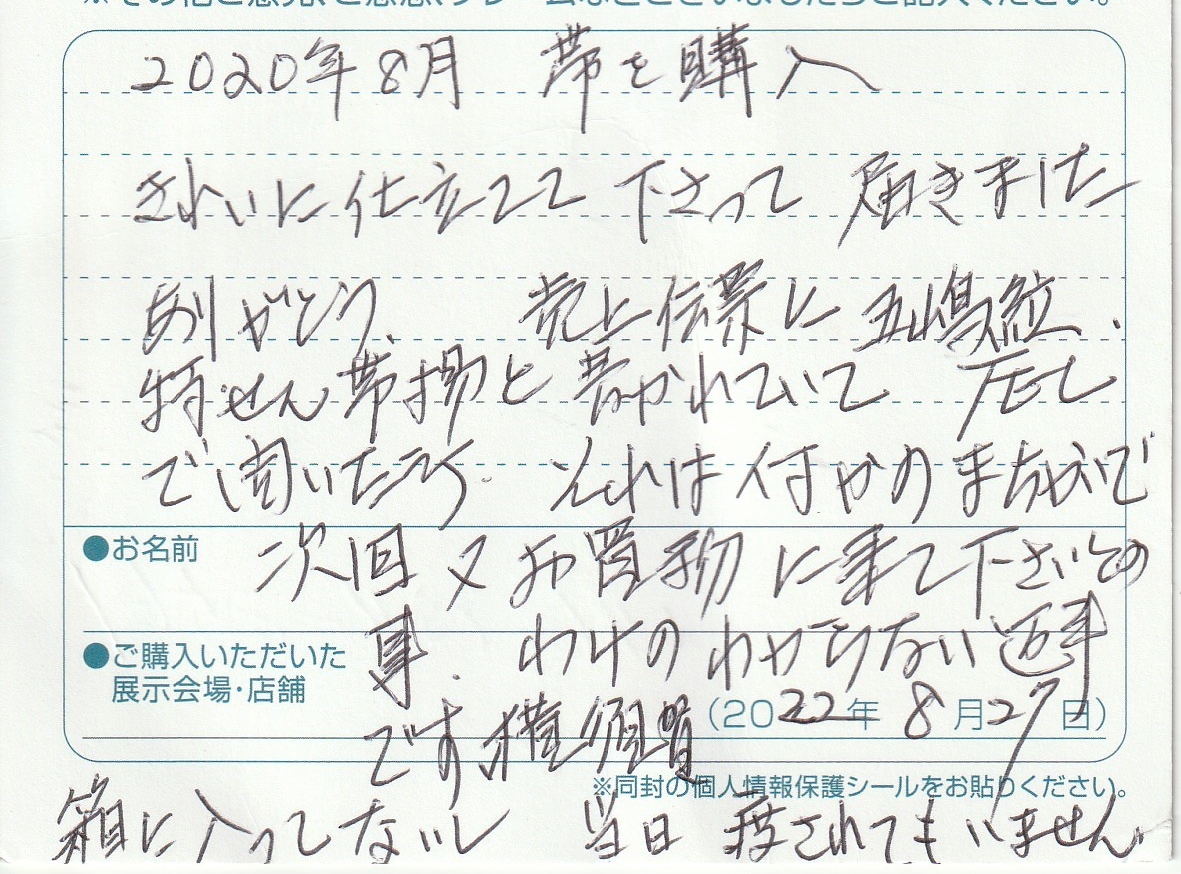 ※その他ご意見、ご感想、クレームなどございましたらご記入ください。
2020年8月 帯を購入
きれいに仕立てて下さって 届きました
ありがとう、 売上伝票に 五嶋紐、
特せん帯揚と書かれていて 店
で聞いたところ それは何かのまちがいで
●お名前
次回又お買物に来て下さいとの
事、わけのわからない返事
●ご購入いただいた
展示会場・店舗
です 横須賀
(2022年 8月27日)
※同封の個人情報保護シールをお貼りください。
箱に入ってないし 当日 渡されてもいません